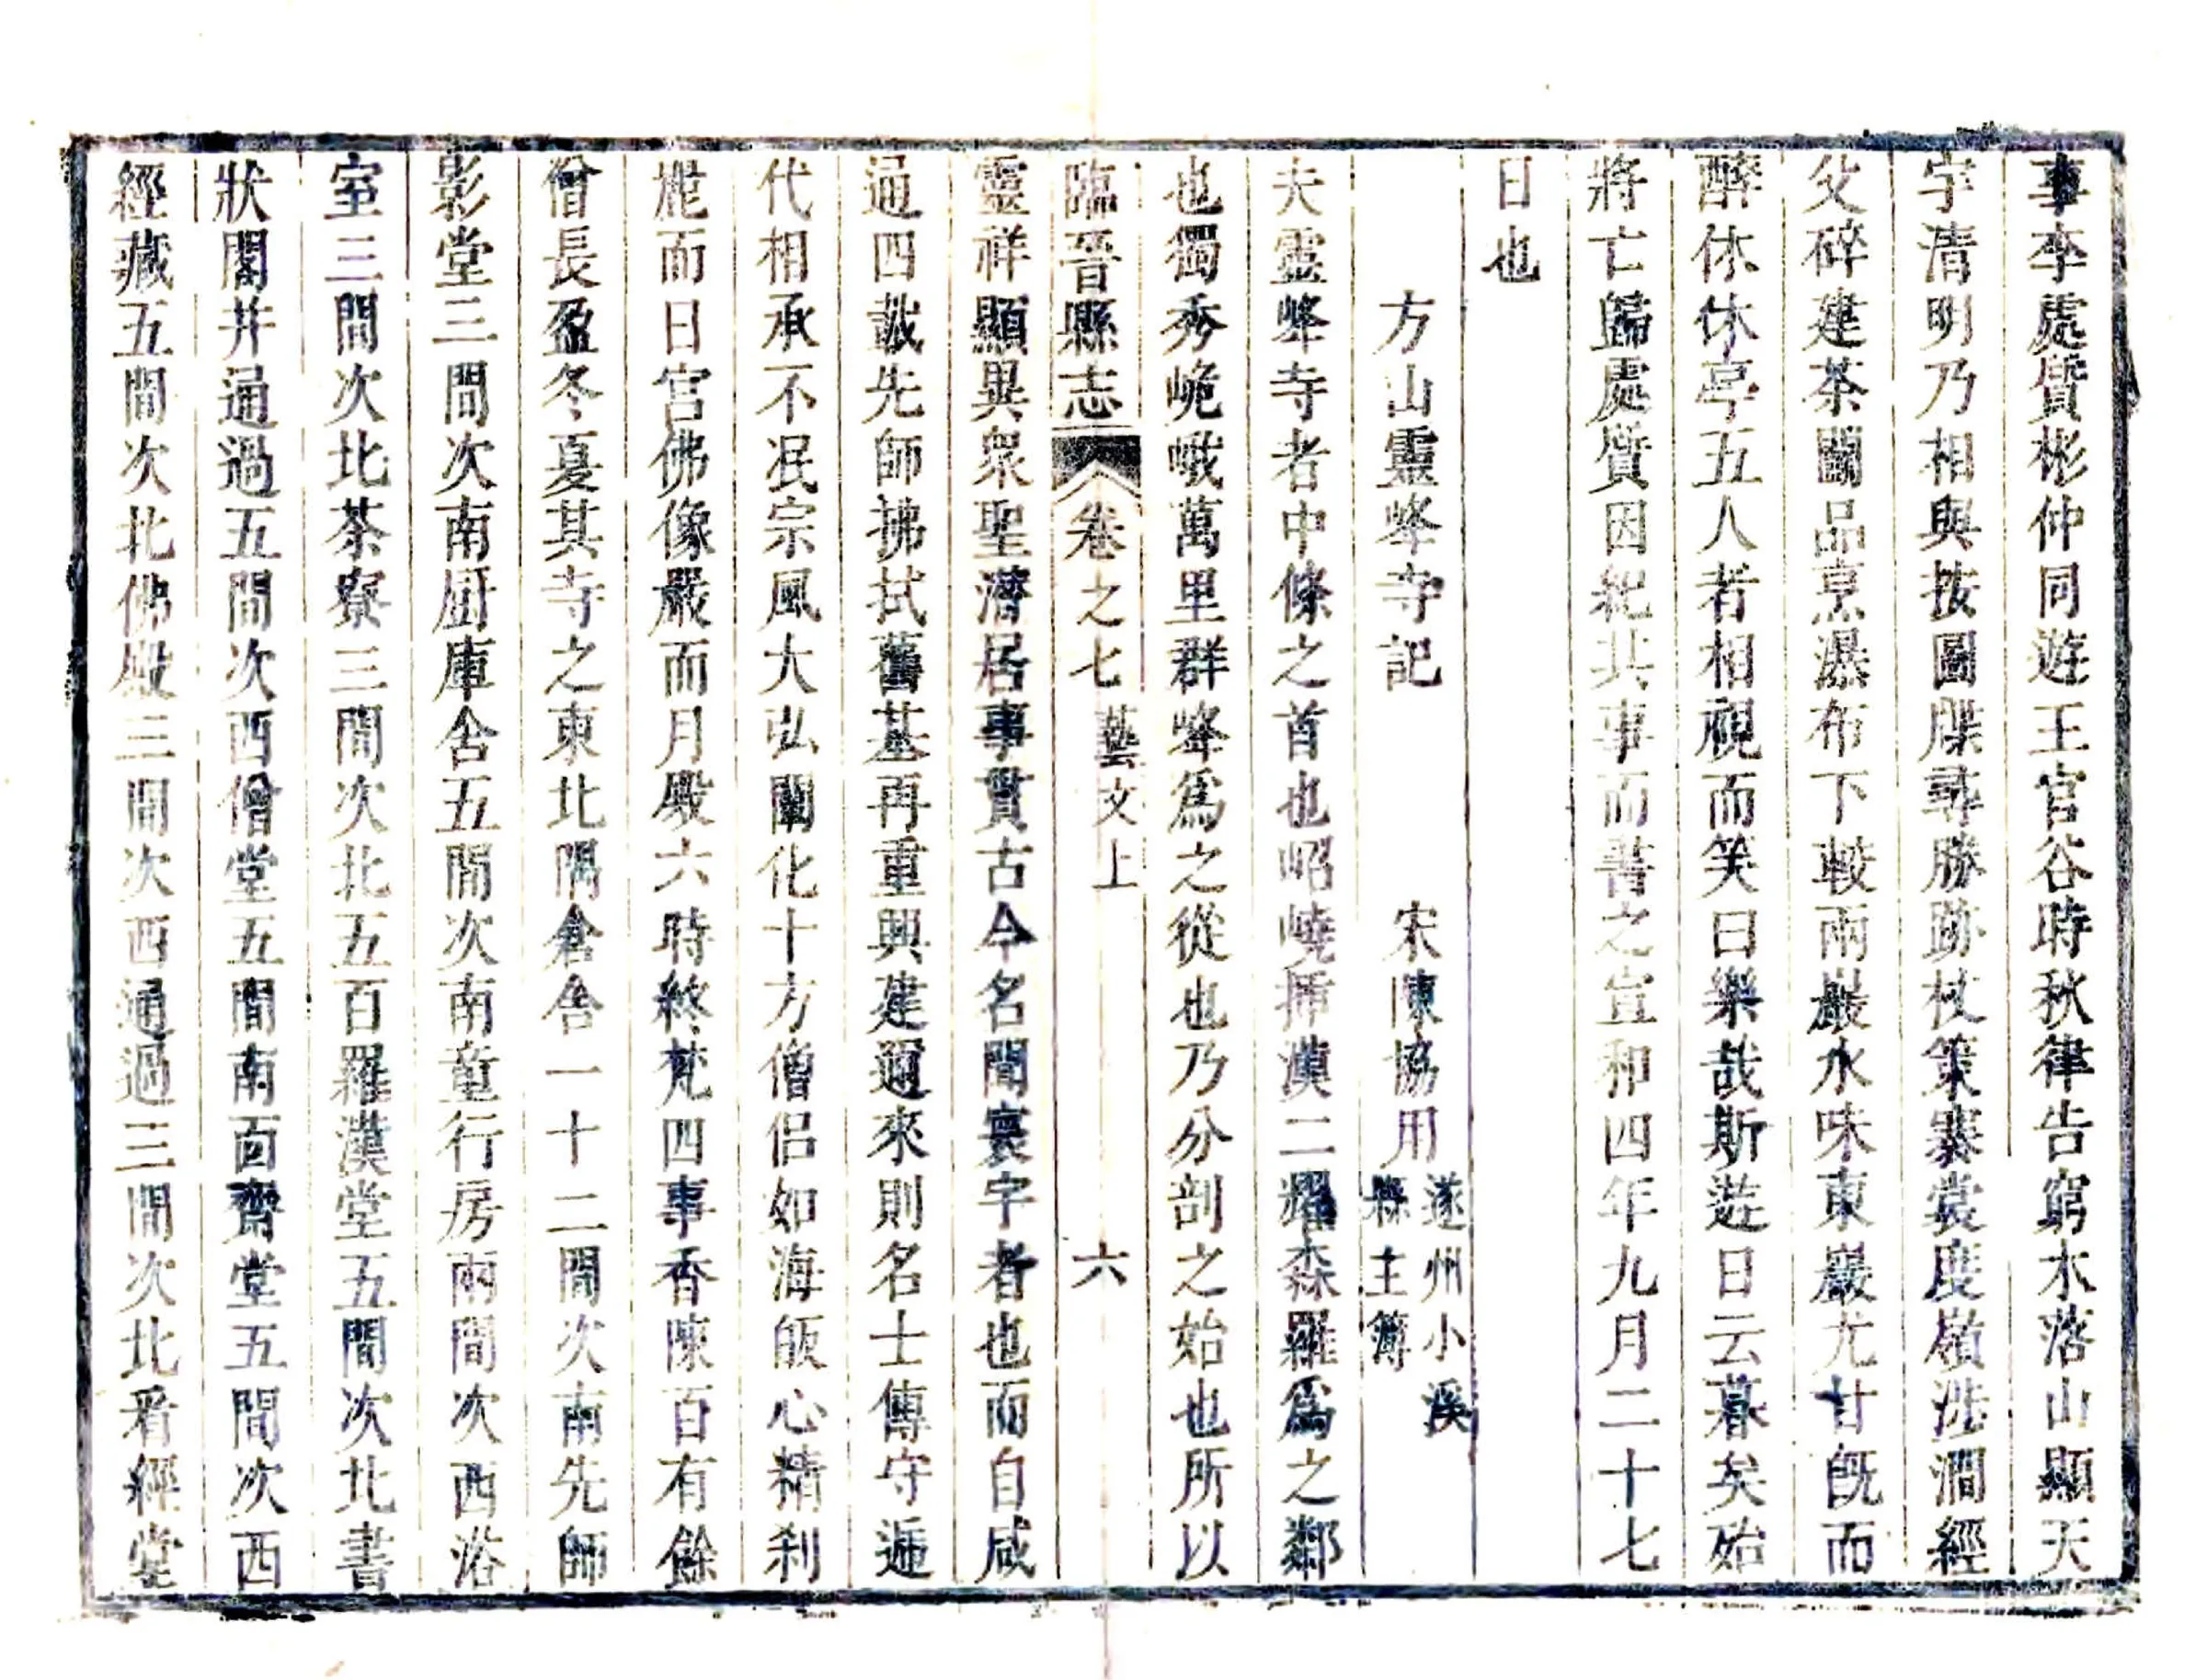 事李處貭彬仲同遊王官谷時秋律告窮木落山顯天
宇清明乃相與按圖牒尋勝跡杖策褰裳度嶺涉澗經
父碎建茶闘品烹瀑布下較兩巖水味東巖尤甘旣而
醉休休亭五人者相視而笑曰樂哉斯遊日云暮矣始
將亡歸處質因紀其事而書之宣和四年九月二十七
日也
方山靈峰寺記 宋陳協用 遂州小溪縣主簿
夫靈峰寺者中條之首也岹嶢揷漢二耀森羅爲之鄰
也獨秀峗峨萬里群峰爲之從也乃分剖之始也所以
臨晉縣志 卷之七 藝文上 六
靈祥顯異衆聖濳居事貫古今名聞寰宇者也而自咸
通四載先師拂拭舊基再重興建邇來則名士傳守遞
代相承不泯宗風大弘闡化十方僧侣如海皈心精刹
㡧而日宫佛像嚴而月殿六時終梵四事香陳百有餘
僧長盈冬夏其寺之東北隅倉舍一十二間次南先師
影堂三間次南厨庫舍五間次南童行房兩間次西浴
室三間次北茶寮三間次北五百羅漢堂五間次北書
狀閣并通過五間次西僧堂五間南面齋堂五間次西
經藏五間次北佛殿三間次西通過三間次北看經堂